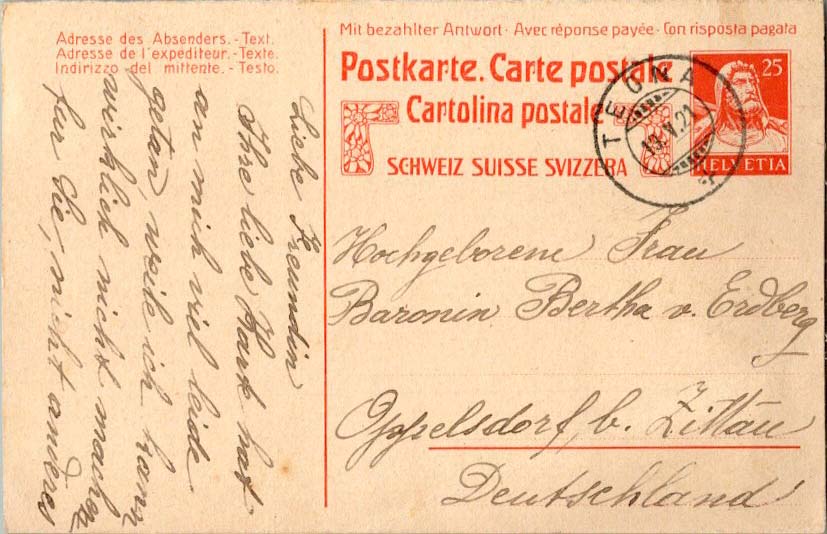 Adresse des Absenders. - Text.
Adresse de l'expéditeur. - Texte.
Indirizzo del mittente. - Testo.
Mit bezahlter Antwort · Avec réponse payée · Con risposta pagata
Postkarte. Carte postale
Cartolina postale
SCHWEIZ SUISSE SVIZZERA
25
HELVETIA
TEGNA
19.V.21
Hochgeborene Frau
Baronin Bertha v. Erdberg
Oppelsdorf, b. Zittau
Deutschland
Liebe Freundin
Ihre liebe Kart hat
an mich viel leide
getan, weile ich kann
wirklich nicht machen
für Sie, nicht anderes